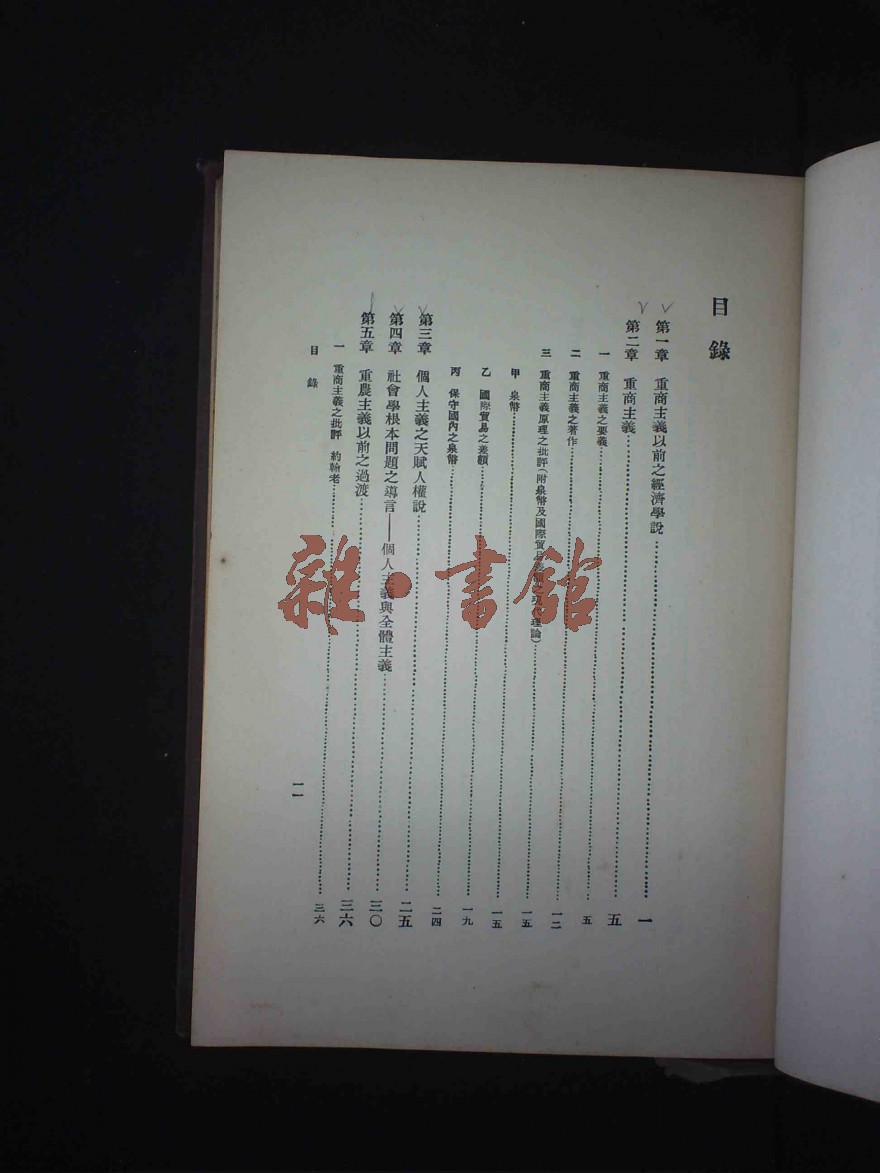 目錄
第一章 重商主義以前之經濟學說……一
第二章 重商主義……五
一 重商主義之要義……五
二 重商主義之著作……一二
三 重商主義原理之批評(附泉幣及國際貿易差額之現代理論)……一五
甲 泉幣……一五
乙 國際貿易之差額……一九
丙 保守國內之泉幣……二四
第三章 個人主義之天賦人權說……二五
第四章 社會學根本問題之導言——個人主義與全體主義……三〇
第五章 重農主義以前之過渡……三六
一 重商主義之批評 約翰老……三六
目錄
一
雜·書館